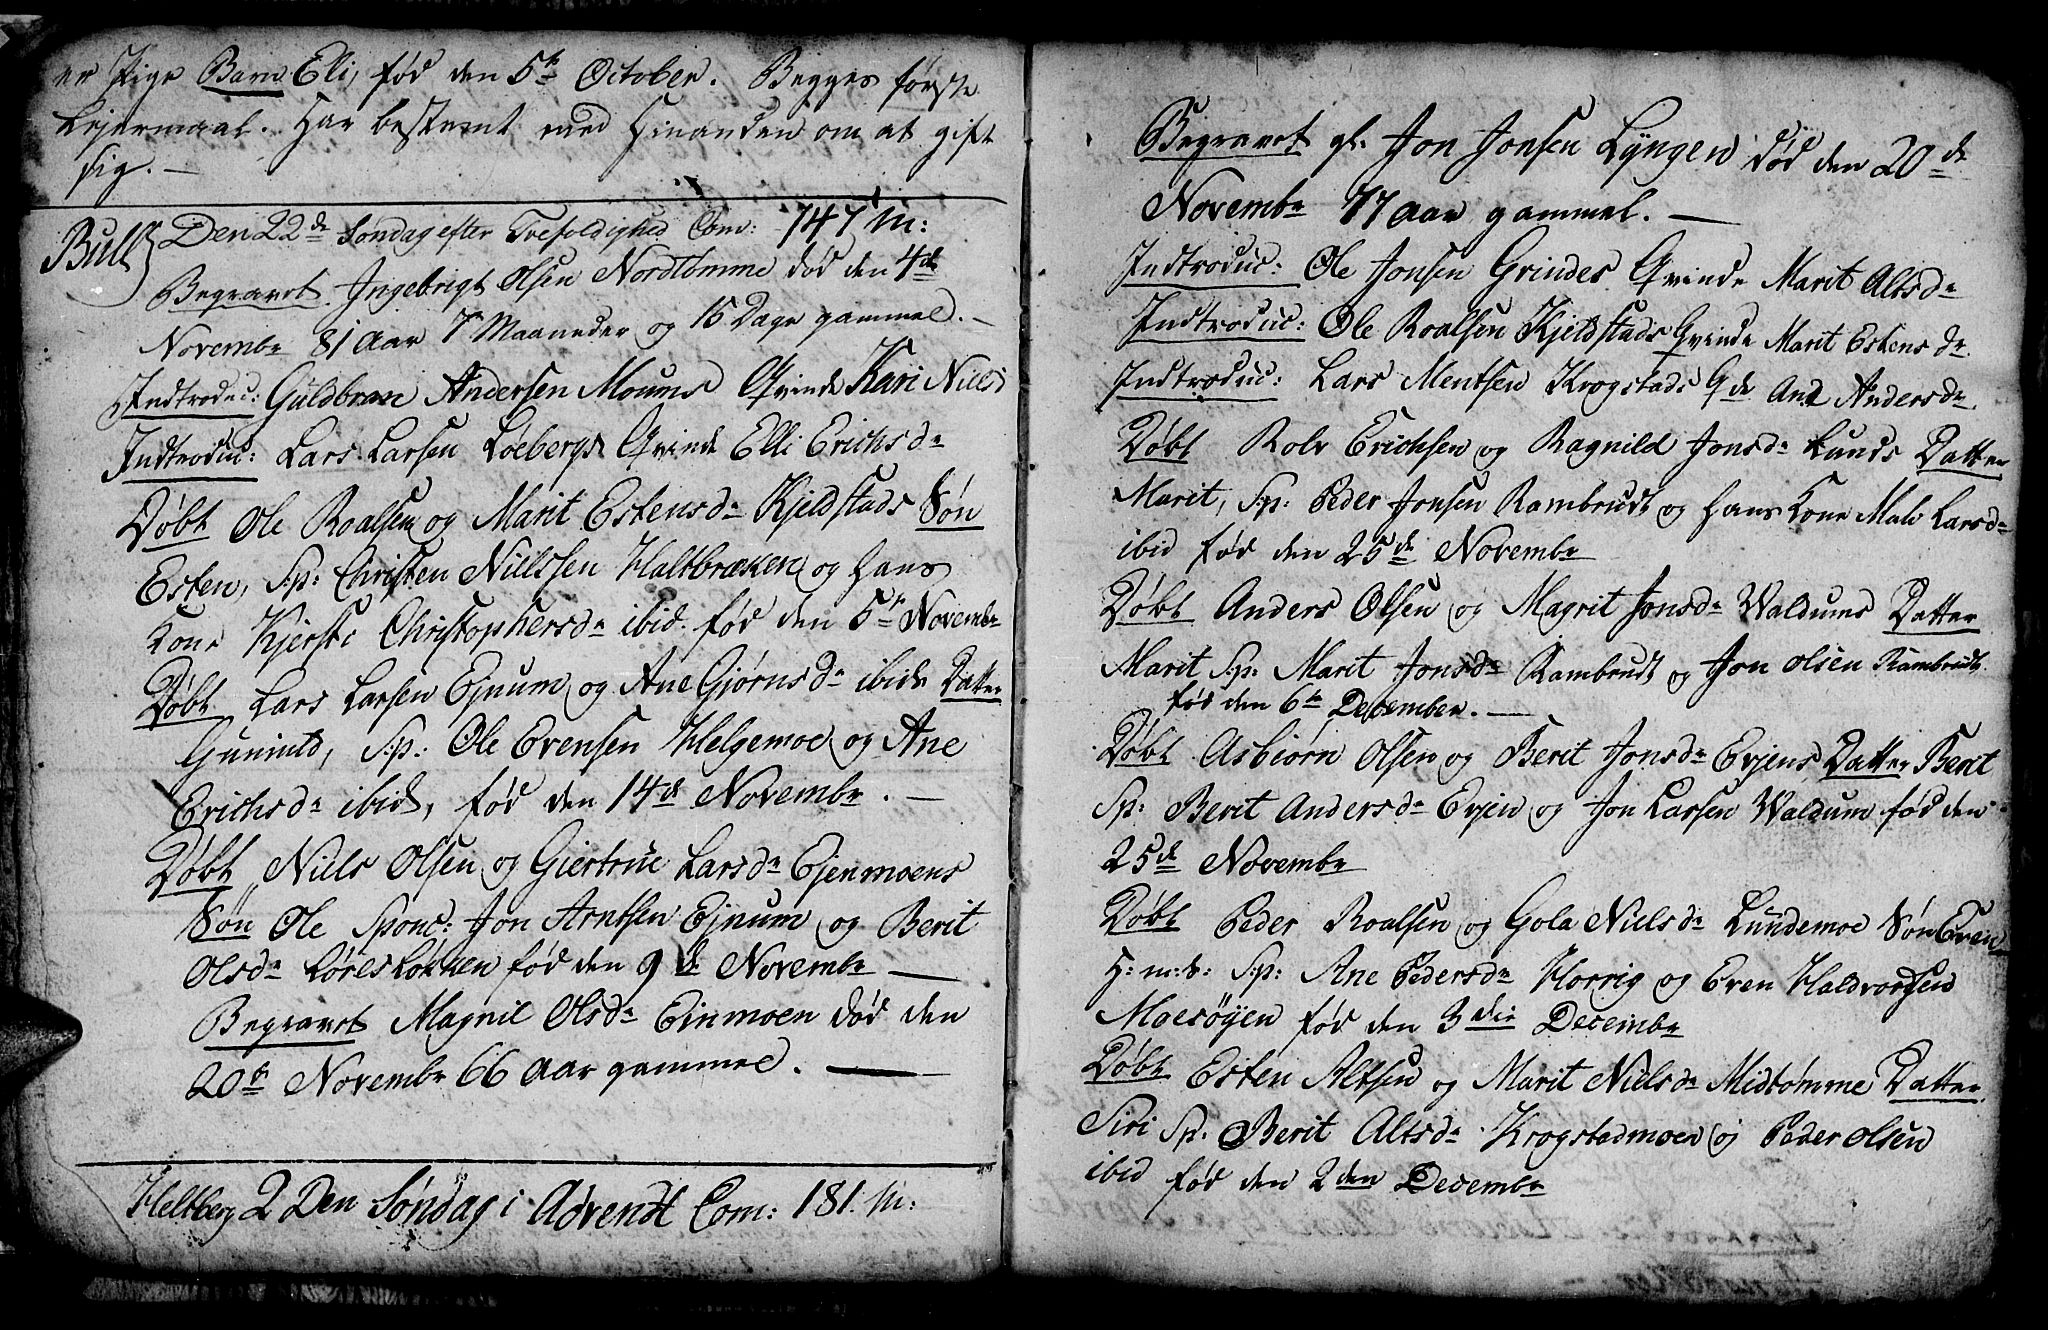 er Pige Barn Eli, fød den 5te October. Begges første
Lejermaal. Har bestemt med Hinanden om at gift
sig. —
Bull Den 22de Søndag efter Trefoldighed Com: 147 M:
Begravet Jngebrigt Olsen Nordtømme død den 4de
Novembr 81 Aar 7 Maaneder og 15 Dage gammel. —
Jndtroduc: Guldbran Andersen Moums Qvinde Kari Niels
Jndtroduc: Lars Larsen Løebergs Qvinde Elli Erichsdr
Døbt Ole Roalsen og Marit Estensdr Kjeldstads Søn
Esten, Sp: Christen Nielssen Haltbræken og hans
Kone Kjersti Christophersdr ibid. fød den 5te Novembr
Døbt Lars Larsen Ejnum og Ane Gjørnsdr ibide Datter
Gunild, Sp: Ole Evensen Helgemoe og Ane
Erichsdr ibid, fød den 14de Novembr. —
Døbt Niels Olsen og Giertrue Larsdr Ejenmoens
Søn Ole Sponc: Jon Arntsen Ejnum og Berit
Olsdr Løresløkken fød den 9de Novembr —
Begravet Magnil Olsdr Einmoen død den
20te Novembr 66 Aar gammel. —
Heltberg 2 Den Søndag i Advendt Com: 181. M:
Begravet gl: Jon Jonsen Lÿngen død den 20de
Novembr 77 Aar gammel. —
Jndtroduc: Ole Jonsen Grindes Qvinde Marit Altsdr
Jndtroduc: Ole Roalsen Kjeldstads Qvinde Marit Estensdr
Jndtroduc: Lars Mentsen Krogstads Qde And Andersdr
Døbt Rolv Erichsen og Ragnild Jonsdr Lunds Datter
Marit, Sp: Peder Jonsen Rambrudt og hans Kone Malv Larsdr
ibid fød den 25de Novembr
Døbt Anders Olsen og Magrit Jonsdr Waldums Datter
Marit Sp: Marit Jonsdr Rambrudt og Jon Olsen Rambrudt
fød den 6te December. —
Døbt Asbiørn Olsen og Berit Jonsdr Evjens Datter Berit
Sp: Berit Andersdr Evjen og Jon Larsen Waldum fød den
25de Novembr
Døbt Peder Roalsen og Gola Nielsdr Lundemoe Søn Even
H: m: d: Sp: Ane Pedersdr Horrig og Even Haldvorsen
Moesøÿen fød den 3die Decembr
Døbt Esten Altsen og Marit Nielsdr Midtømme Datter
Siri Sp. Berit Altsdr Krogstadmoen og Peder Olsen
ibid fød den 2den Decembr